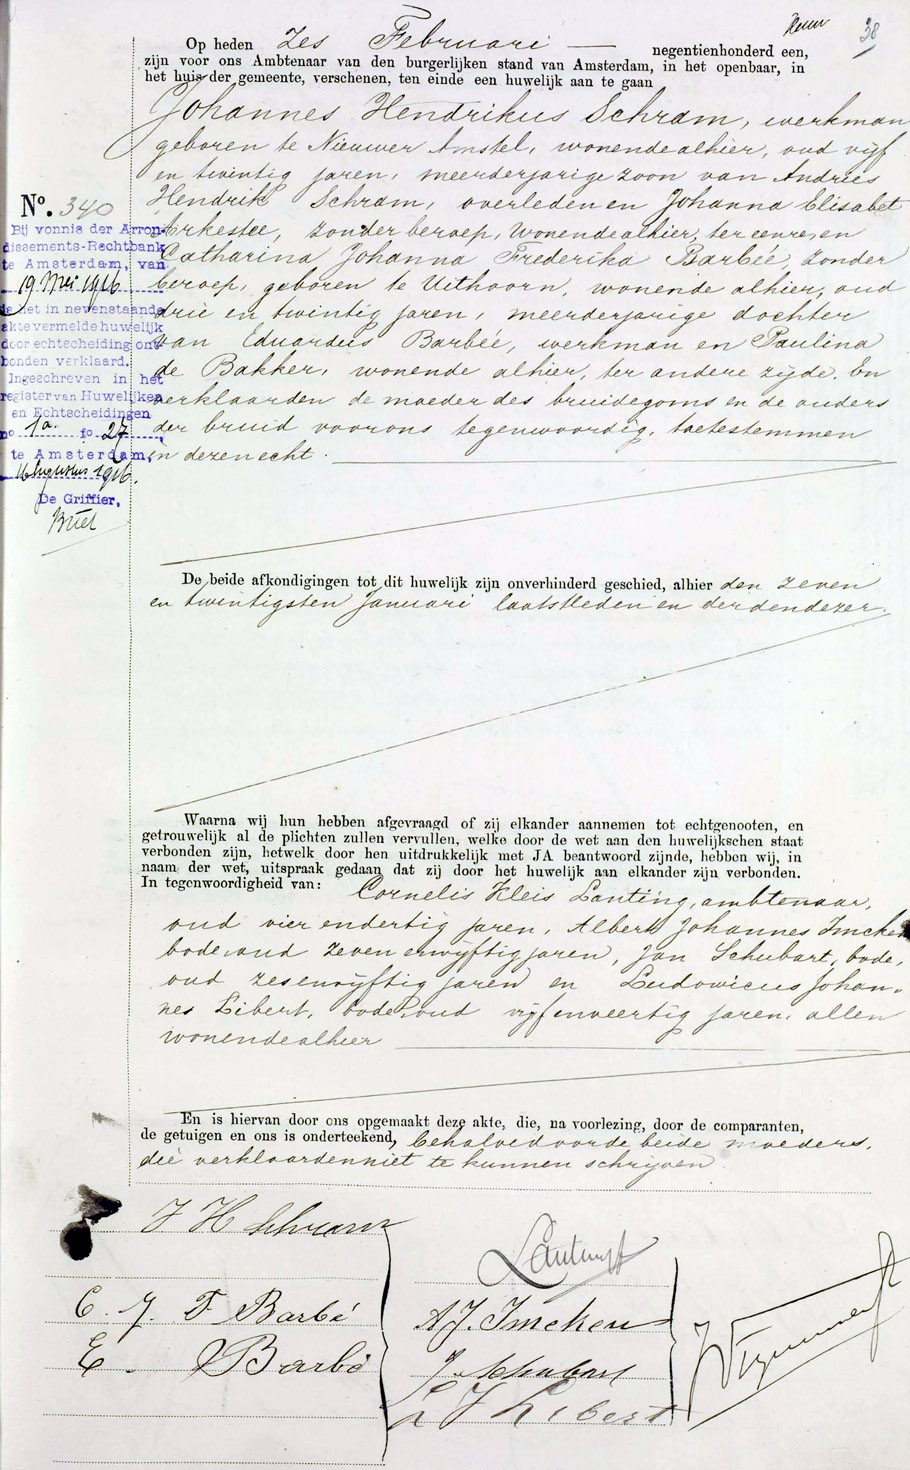 38
Op heden Zes Februari — negentienhonderd een,
zijn voor ons Ambtenaar van den burgerlijken stand van Amsterdam, in het openbaar, in
het huis der gemeente, verschenen, ten einde een huwelijk aan te gaan
Johannes Hendrikus Schram, werkman
geboren te Nieuwer Amstel, wonende alhier, oud vijf
en twintig jaren, meerderjarige zoon van Andries
Hendrik Schram, overleden en Johanna Elisabet
zonder beroep, wonende alhier, ter eenre, en
Catharina Johanna Frederika Barbéé, zonder
beroep, geboren te Uithoorn, wonende alhier, oud
drie en twintig jaren, meerderjarige dochter
van Eduardus Barbéé, werkman en Paulina
de Bakker, wonende alhier, ter andere zijde. En
verklaarden de moeder des bruidegoms en de ouders
der bruid voor ons tegenwoordig, toetestemmen
in dezen echt.
No. 340
Bij vonnis der Arron-
dissements-Rechtbank
te Amsterdam, van
19 Mei 1916
is het in nevenstaande
akte vermelde huwelijk
door echtscheiding ont-
bonden verklaard.
Ingeschreven in het
register van Huwelijken
en Echtscheidingen
no 1a. fo 27,
te Amsterdam,
Augustus 1916.
De Griffier,
De beide afkondigingen tot dit huwelijk zijn onverhinderd geschied, alhier den zeven
en twintigsten Januari laatstleden en derden dezer.
Waarna wij hun hebben afgevraagd of zij elkander aannemen tot echtgenooten, en
getrouwelijk al de plichten zullen vervullen, welke door de wet aan den huwelijkschen staat
verbonden zijn, hetwelk door hen uitdrukkelijk met JA beantwoord zijnde, hebben wij, in
naam der wet, uitspraak gedaan dat zij door het huwelijk aan elkander zijn verbonden.
In tegenwoordigheid van: Cornelis Kleis Lanting, ambtenaar,
oud vier en dertig jaren, Albert Johannes Imcken
bode, oud zeven en vijftig jaren, Jan Schubart, bode,
oud zes en vijftig jaren en Ludowicus Johan-
nes Libert, bode, oud vijf en veertig jaren, allen
wonende alhier
En is hiervan door ons opgemaakt deze akte, die, na voorlezing, door de comparanten,
de getuigen en ons is onderteekend, behalve door de beide moeders,
die verklaarden niet te kunnen schrijven
J H Schram
C. J. F Barbé
E. Barbé
Lanting
A. J. Imcken
J. Schubart
L J Libert